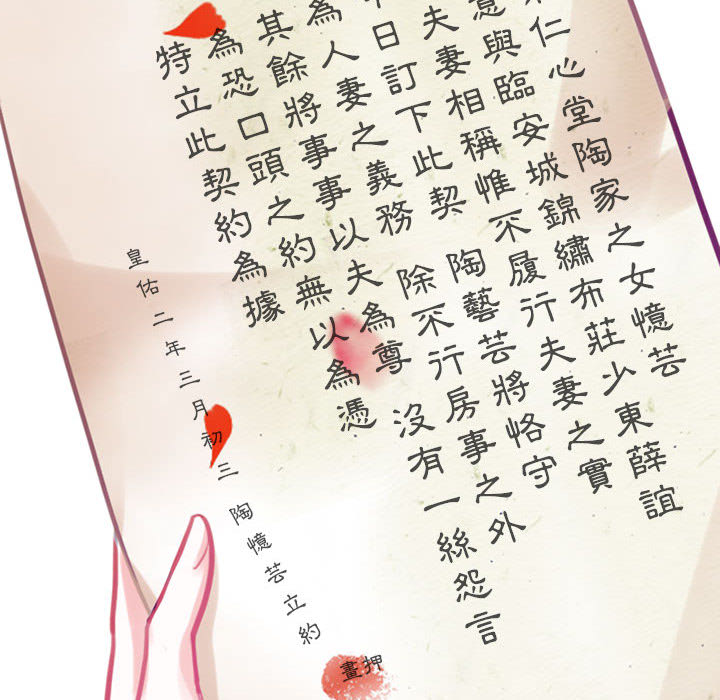 仁心堂陶家之女憶芸
意與臨安城錦繡布莊少東薛誼
夫妻相稱惟不履行夫妻之實
日訂下此契 陶藝芸將恪守
為人妻之義務 除不行房事之外
其餘將事事以夫為尊 沒有一絲怨言
為恐口頭之約無以為憑
特立此契約為據
皇佑二年三月初三 陶憶芸立約
畫押